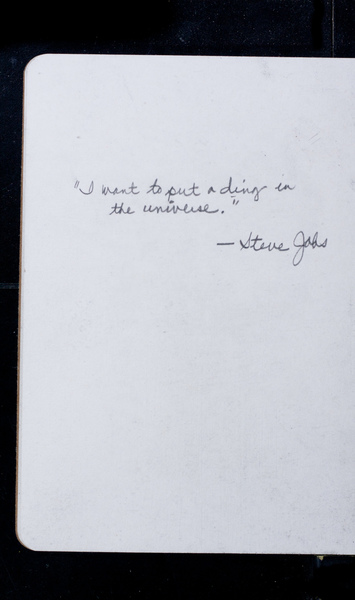 "I want to put a ding in
the universe."
— Steve Jobs